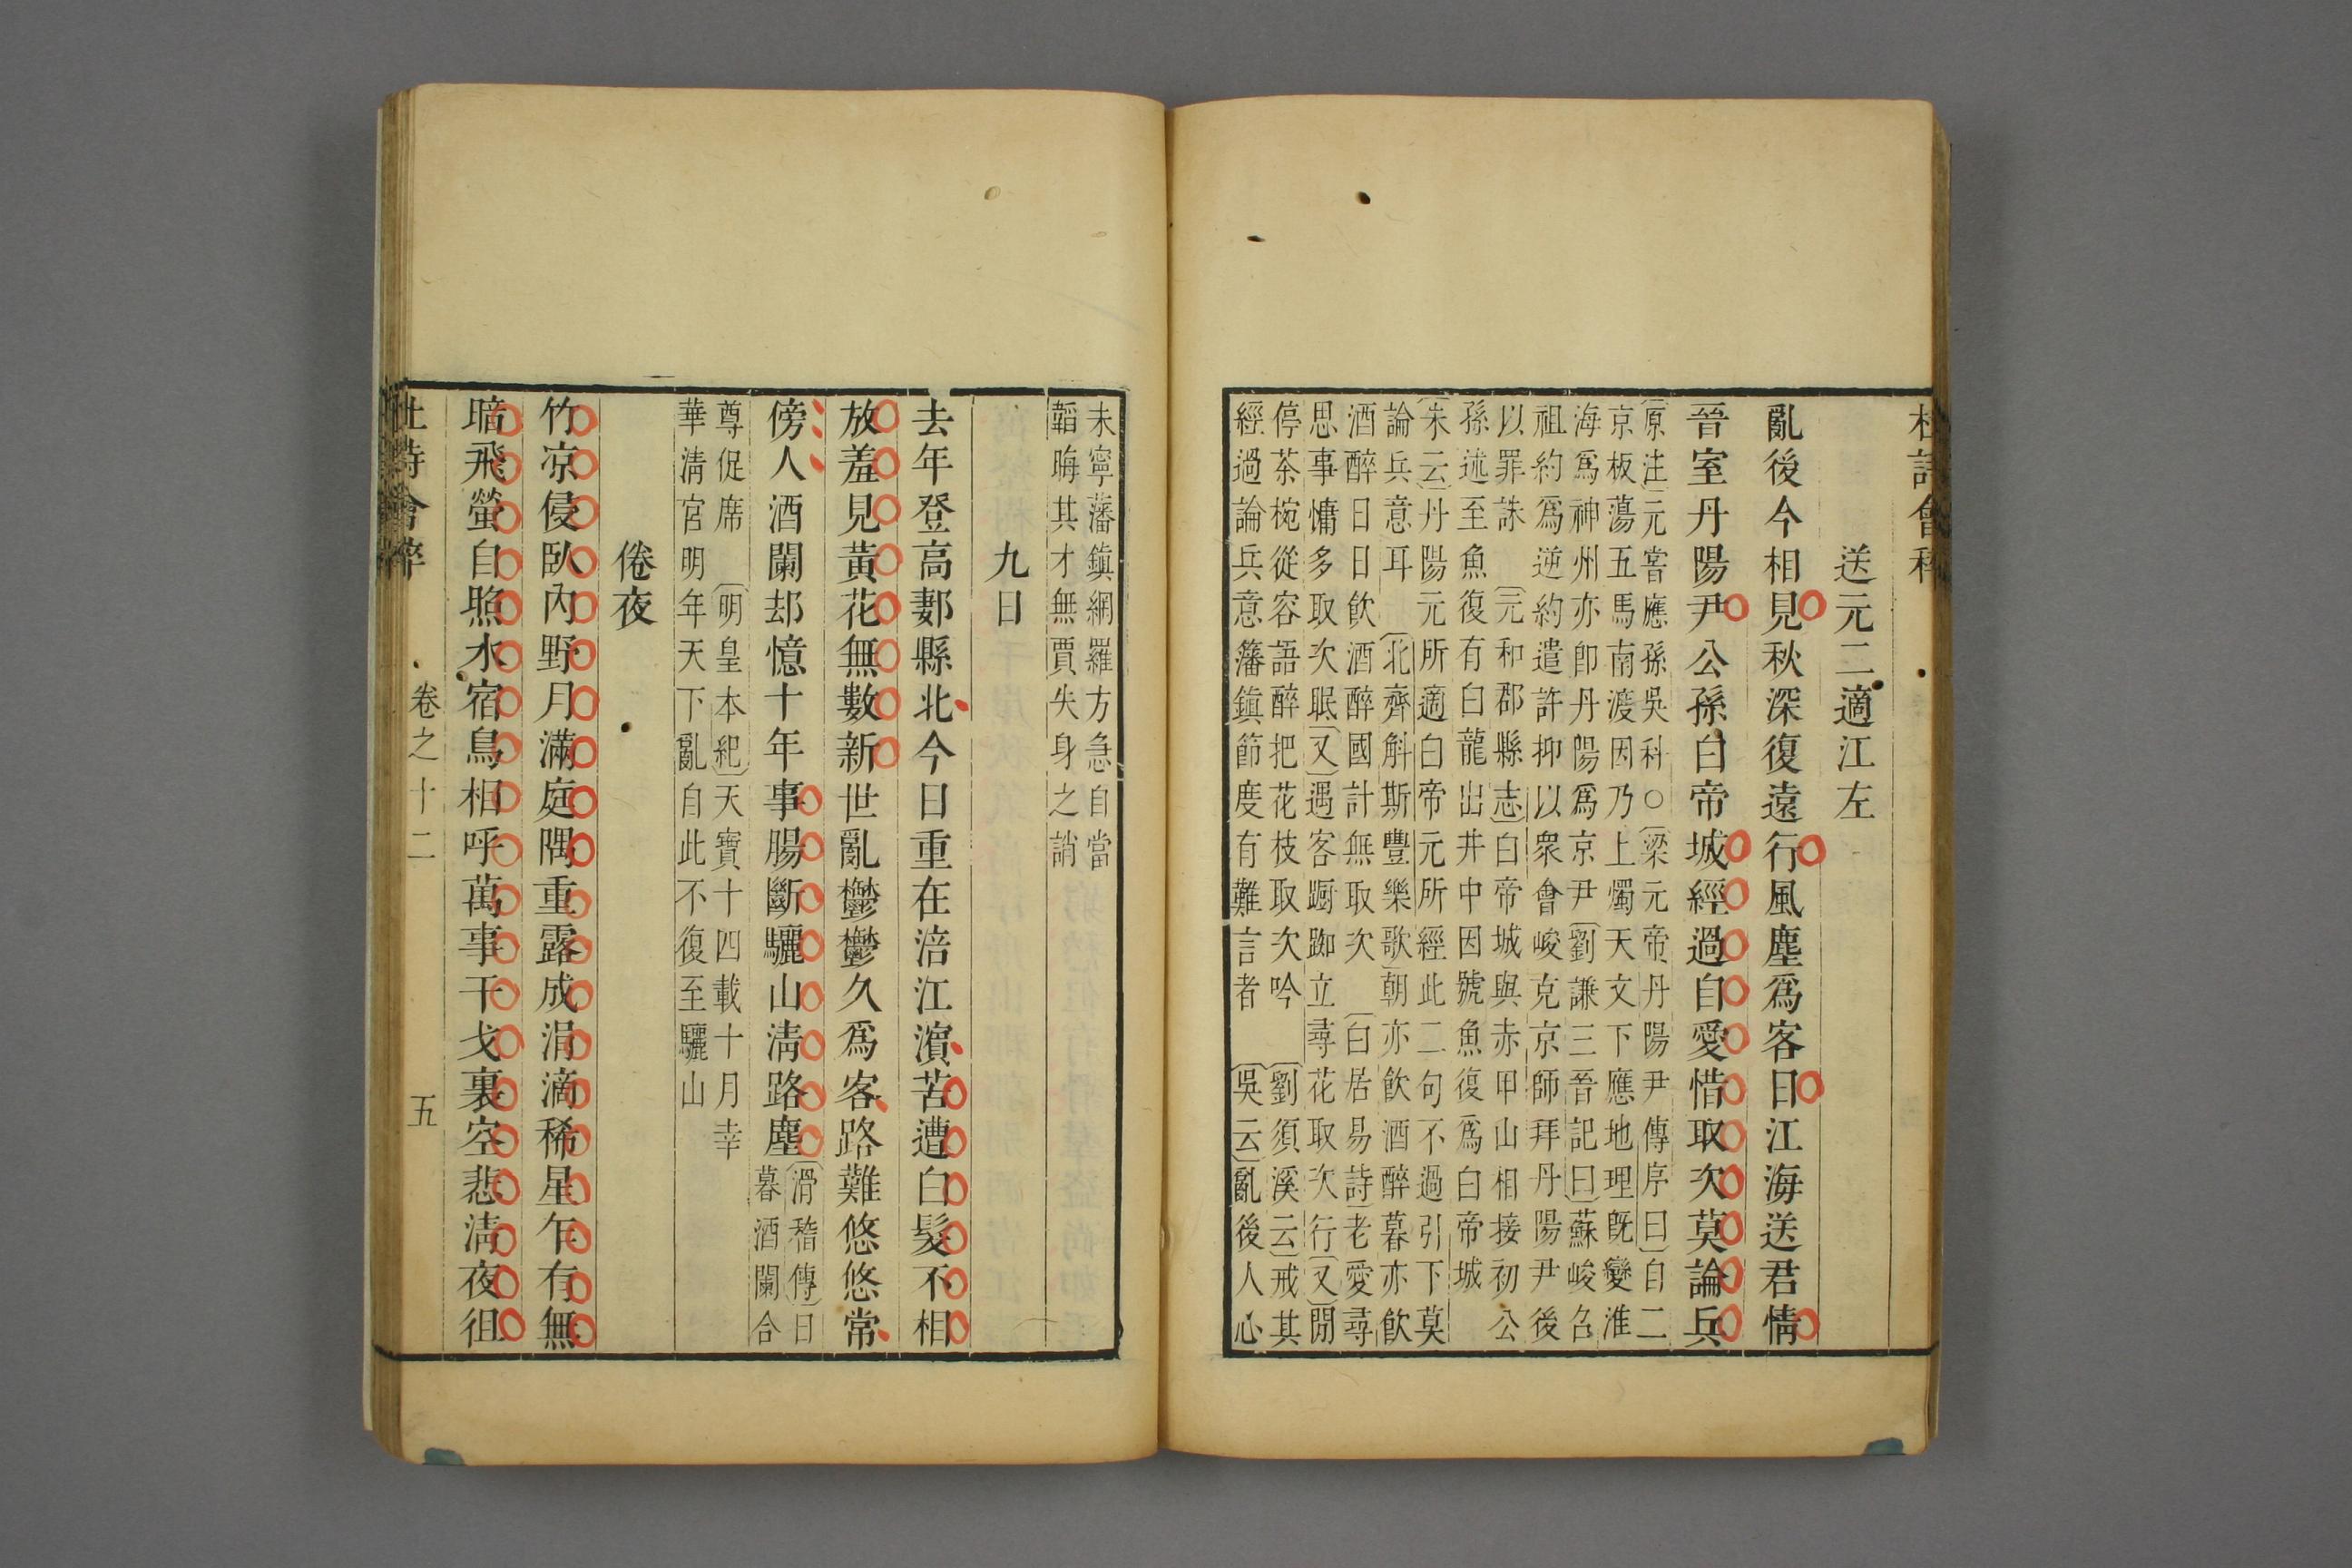 杜詩會稡
送元二適江左
亂後今相見秋深復遠行風塵爲客日江海送君情
晉室丹陽尹公孫白帝城經過自愛惜取次莫論兵
原注元嘗應孫吳科○梁元帝丹陽尹傳序曰自二
京板蕩五馬南渡因乃上燭天文下應地理旣變淮
海爲神州亦卽丹陽爲京尹劉謙三晉記曰蘇峻召
祖約爲逆約遣許抑以衆會峻克京師拜丹陽尹後
以罪誅 元和郡縣志白帝城與赤甲山相接初公
孫述至魚復有白龍出井中因號魚復爲白帝城
朱云丹陽元所適白帝元所經此二句不過引下莫
論兵意耳 北齊斛斯豐樂歌朝亦飲酒醉暮亦飲
酒醉日日飲酒醉國計無取次 白居易詩老愛尋
思事慵多取次眠又遇客踟蹰立尋花取次行又閒
停茶椀從容語醉把花枝取次吟 劉須溪云戒其
經過論兵意籓鎮節度有難言者 吳云亂後人心
未寧藩鎮網羅方急自當
韜晦其才無賈失身之誚
九日
去年登高郪縣北今日重在涪江濵苦遭白髮不相
放羞見黃花無數新世亂鬱鬱久爲客路難悠悠常
傍人酒闌却憶十年事腸斷驪山淸路塵滑稽傳日
暮酒闌合
尊促席 明皇本紀天寶十四載十月幸
華淸宮明年天下亂自此不復至驪山
倦夜
竹凉侵臥內野月滿庭隅重露成涓滴稀星乍有無
暗飛螢自照水宿鳥相呼萬事干戈裏空悲淸夜徂
杜詩會稡 卷之十二 五